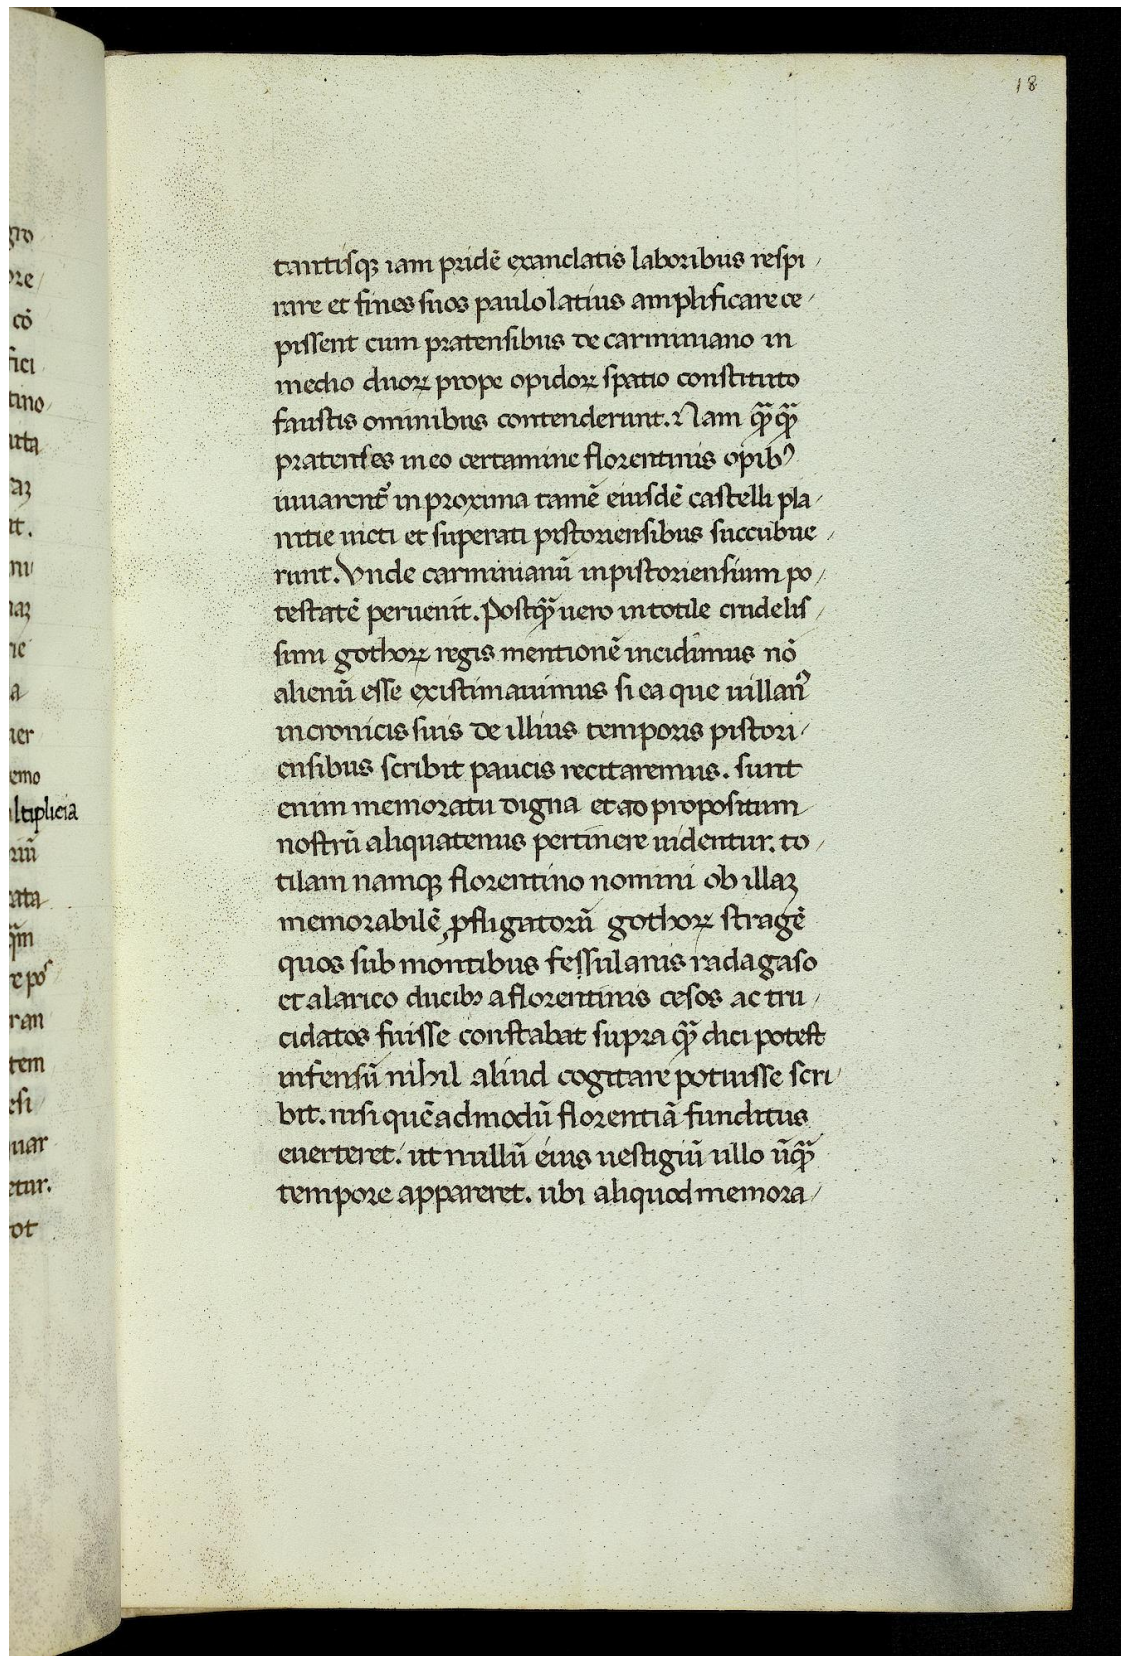 18
tantisqꝫ iam pridē exanclatis laboribus respi
rare et fines suos paulo latius amplificare ce
pissent cum pratensibus de carminiano in
medio duoꝝ prope opidoꝝ spatio constituto
faustis ominibus contenderunt. Nam qꝫ̄qꝫ̄
pratenses in eo certamine florentinis opibꝰ
iuuarent᷑ in proxima tamē eiusdē castelli pla
nitie uicti et superati pistoriensibus succubue
runt. Vnde carminianū in pistoriensium po
testatē peruenit. Postqꝫ̄ uero in totile crudelis
simi gothoꝝ regis mentionē incidimus nō
alienū esse existimauimus si ea que uillanꝰ
in cronicis suis de illius temporis pistori
ensibus scribit paucis recitaremus. sunt
enim memoratu digna et ad propositum
nostrū aliquatenus pertinere uidentur. to
tilam namqꝫ florentino nomini ob illaꝫ
memorabilē ꝓfligatorū gothoꝝ stragē
quos sub montibus fessulanis radagaso
et alarico ducibꝫ a florentinis cesos ac tru
cidatos fuisse constabat supra qꝫ̄ dici potest
infensū nihil aliud cogitare potuisse scri
bit. nisi quēadmodū florentiā funditus
euerteret. ut nullū eius uestigiū ullo ūqꝫ̄
tempore appareret. ubi aliquod memora